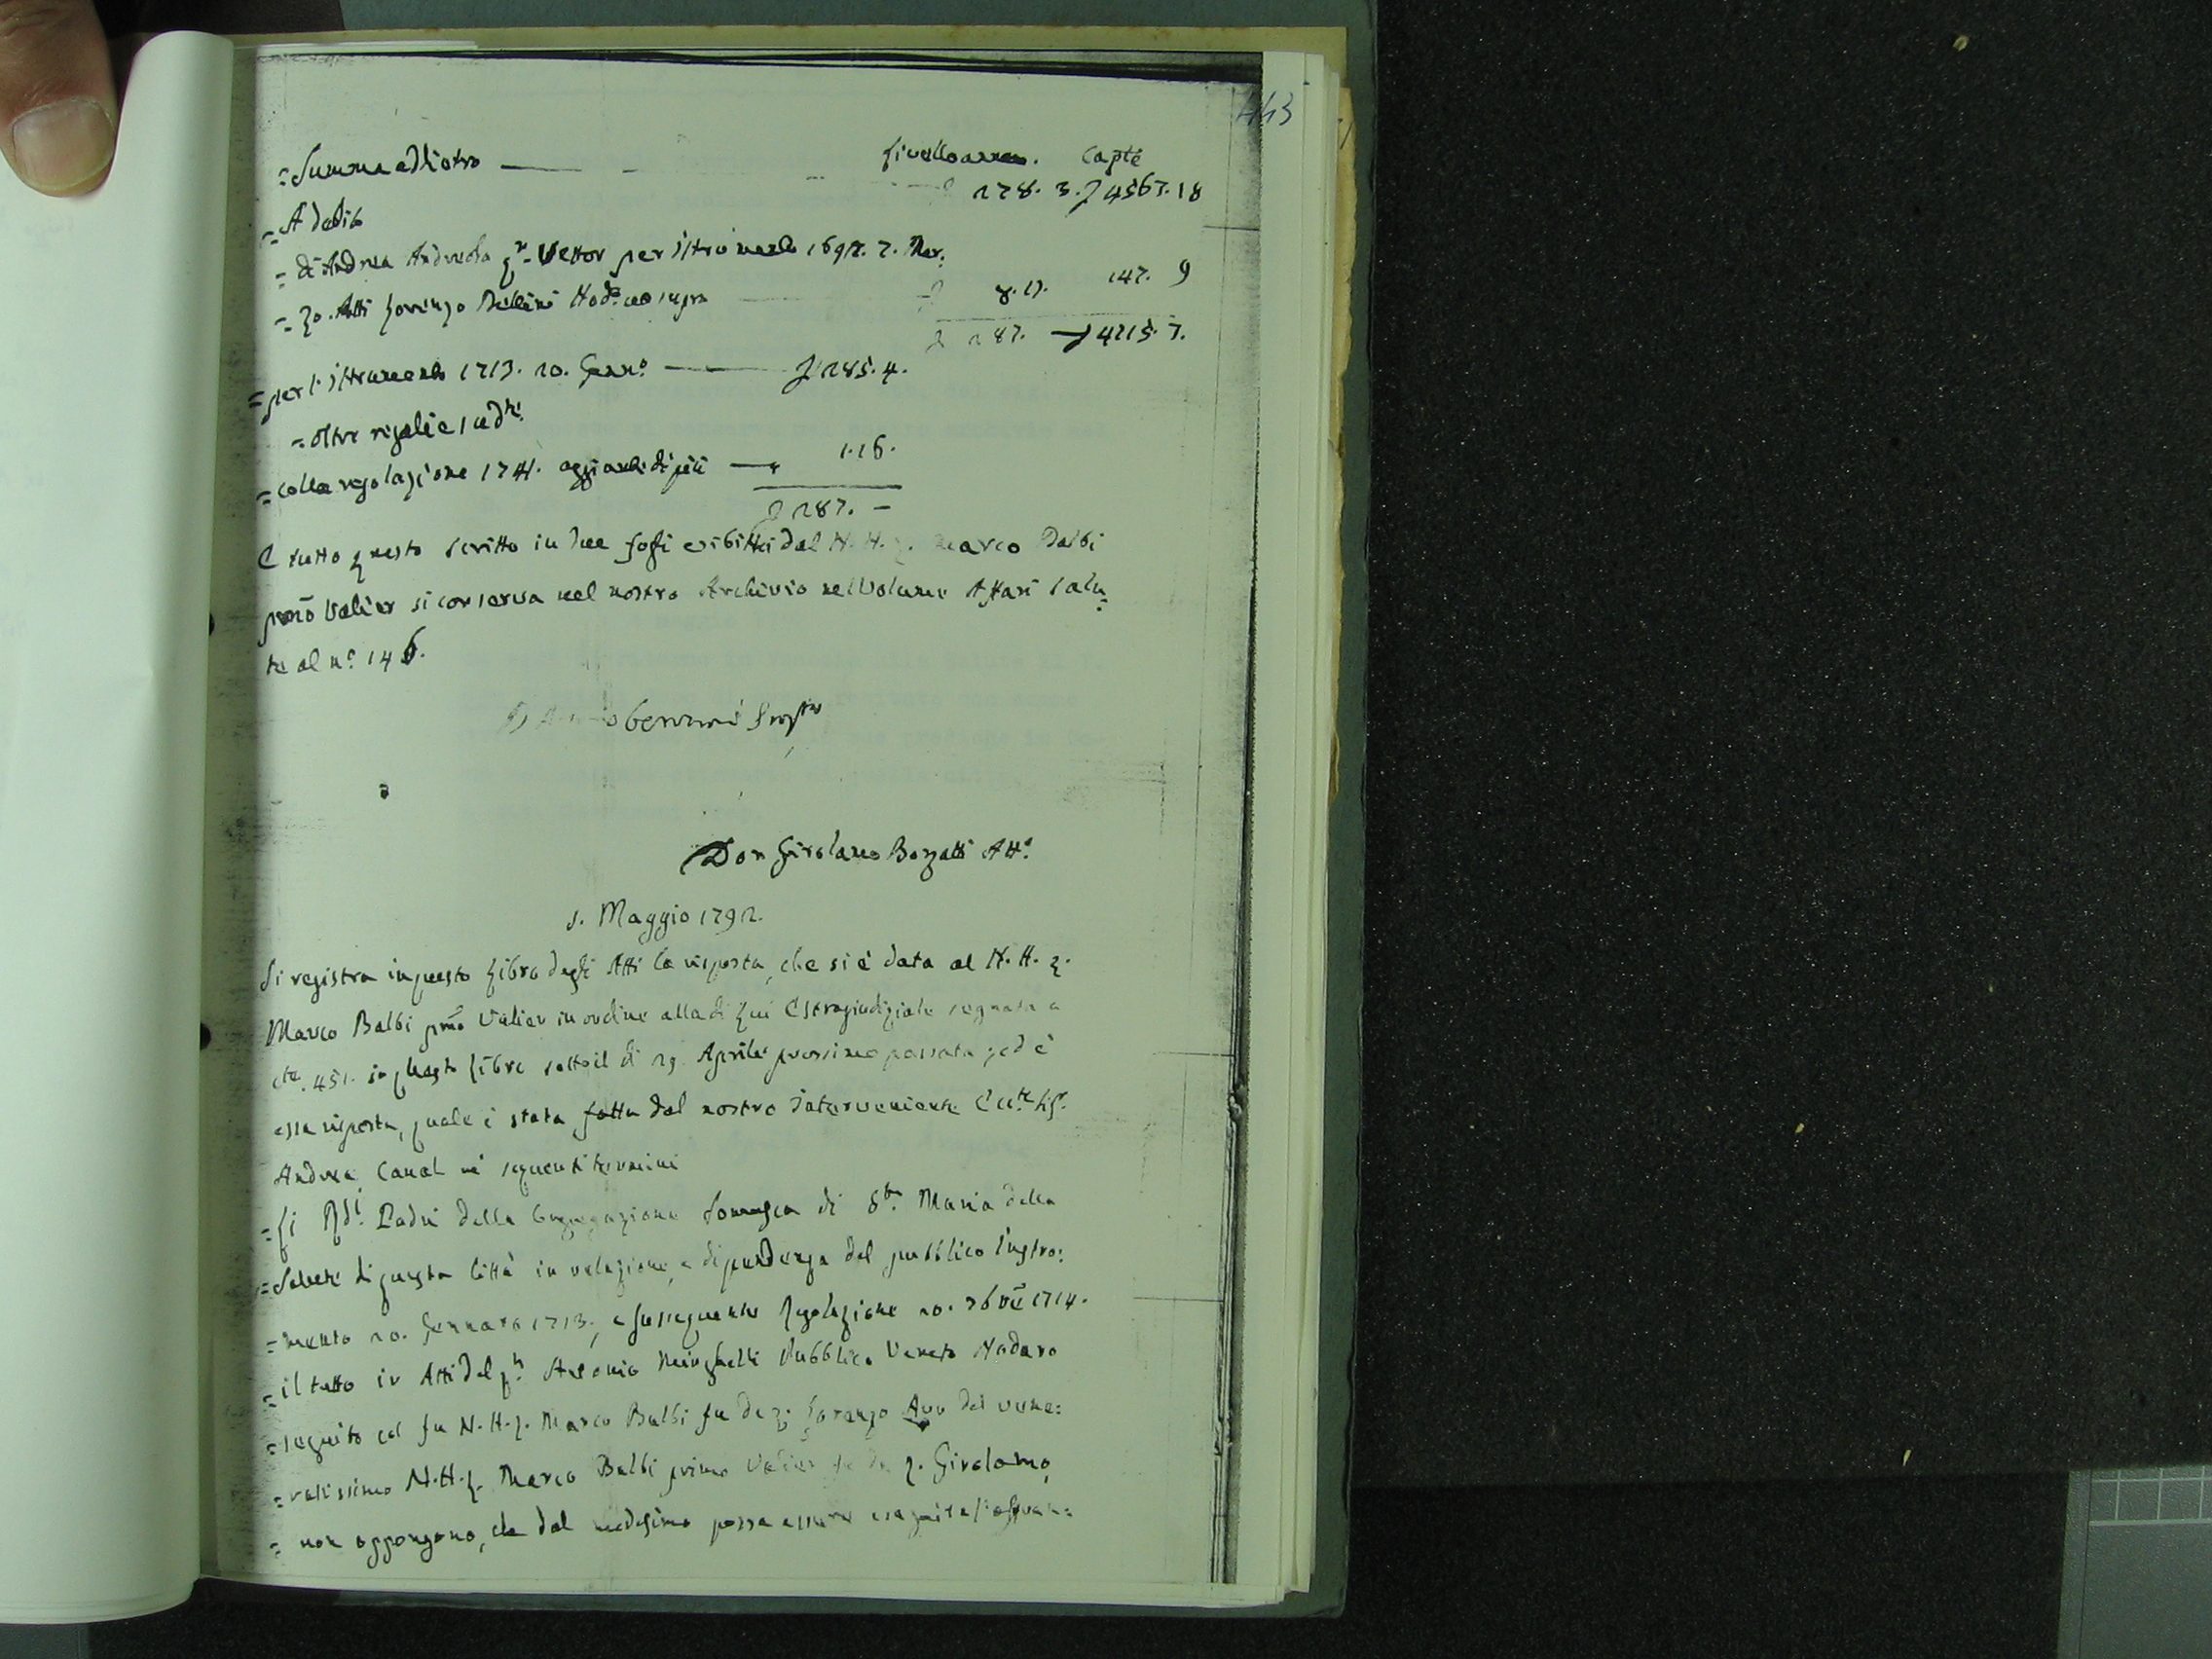 443
= Summa addietro — Livello annuo. Capte
178. 3. 4567. 18
= A debito
= di Andrea Andreola qm Vettor per Istrumento 1692. 7. Mar:
= Zo. Atti Lorenzo Bellini Nodo. ueo supra 8. 17. 147. 9
287. — 4215. 7.
= per l'Istrumento 1713. 20. Gennº — 285. 4.
= oltre regalie sudte
= colla regolazione 1741. aggionti di più — 1. 16.
287. —
E tutto questo scritto in due fogli esibitti dal N. H. z. Marco Balbi
pmo Valier si conserva nel nostro Archivio nel Volume Affari Salu=
te al nº 146.
Don Girolamo Bozatti Attº
1. Maggio 1792.
Si registra in questo Libro degli Atti la risposta, che si è data al N. H. z.
Marco Balbi pmo Valier in ordine alla di Lui Estragiudiziale segnata a
cte. 451. in questo Libro sotto il dì 29. Aprile prossimo passato; ed è
essa risposta, quale è stata fatta dal nostro Interveniente
Andrea Canal nei seguenti termini
= Li Rdi. Padri della Congregazione Somasca di Sta. Maria della
= Salute di questa Città in relazione, e dipendenza del pubblico Instro:
= mento 20. Gennaro 1713., e susseguente Regolazione 20. Xbre 1714.
= il tutto in Atti del qm Antonio Minghelli Pubblico Veneto Nodaro
= seguito col fu N. H. z. Marco Balbi fu de z. Lorenzo Avo del vene:
= ratissimo N. H. z. Marco Balbi primo Valier fu de z. Girolamo,
= non oppongono, che dal medesimo possa essere eseguita l'affran: